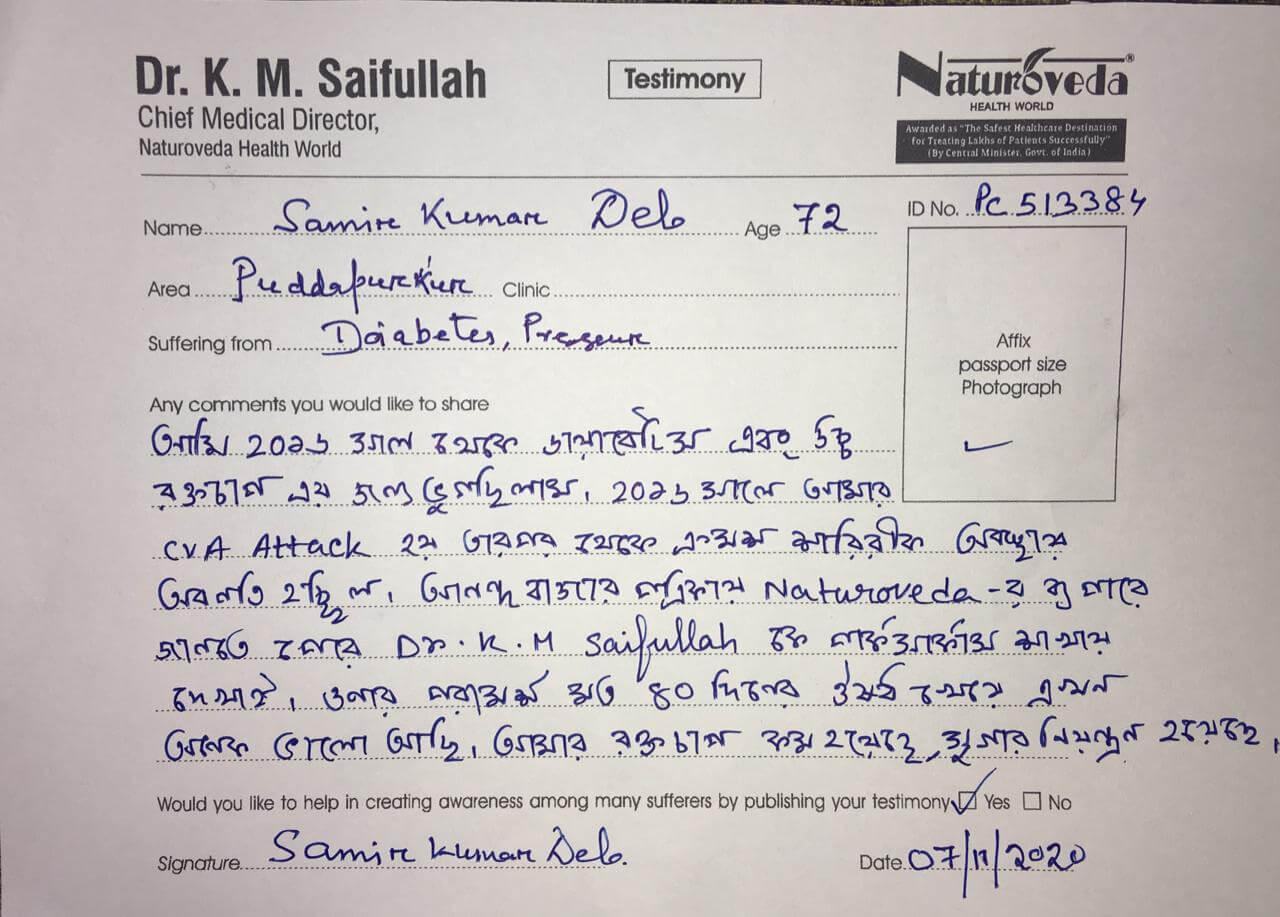 Dr. K. M. Saifullah
Chief Medical Director,
Naturoveda Health World
Testimony
Naturoveda®
HEALTH WORLD
Awarded as "The Safest Healthcare Destination
for Treating Lakhs of Patients Successfully"
(By Central Minister, Govt. of India)
Name Samir Kumar Deb Age 72
ID No. PC 513384
Area Puddapurkur Clinic
Suffering from Daiabetes, Pressure
Affix
passport size
Photograph
Any comments you would like to share
আমি ২০১৬ সাল থেকে ডায়াবেটিস এবং উচ্চ
রক্তচাপ এর ভুগছিলাম। ২০১৬ সালে আমার
CVA Attack হয় তারপর থেকে শারিরীক অবস্থার
অবনতি হচ্ছিল। আনন্দ বাজার পত্রিকায় Naturoveda-র ব্যপারে
জানতে পেরে Dr. K. M Saifullah কে পার্কসার্কাস শাখায়
দেখাই। ওনার পরামর্শ মত ৪০ দিনের ঔষধ খেয়ে এখন
অনেক ভালো আছি। আমার রক্তচাপ কম হয়েছে, সুগার নিয়ন্ত্রন হয়েছে।
Would you like to help in creating awareness among many sufferers by publishing your testimony Yes No
Signature Samir Kumar Deb.
Date 07/11/2020